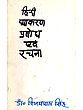 हिन्दी
व्याकरण
प्रबोध
एवं
रचना
डॉ० विजयपाल सिंह